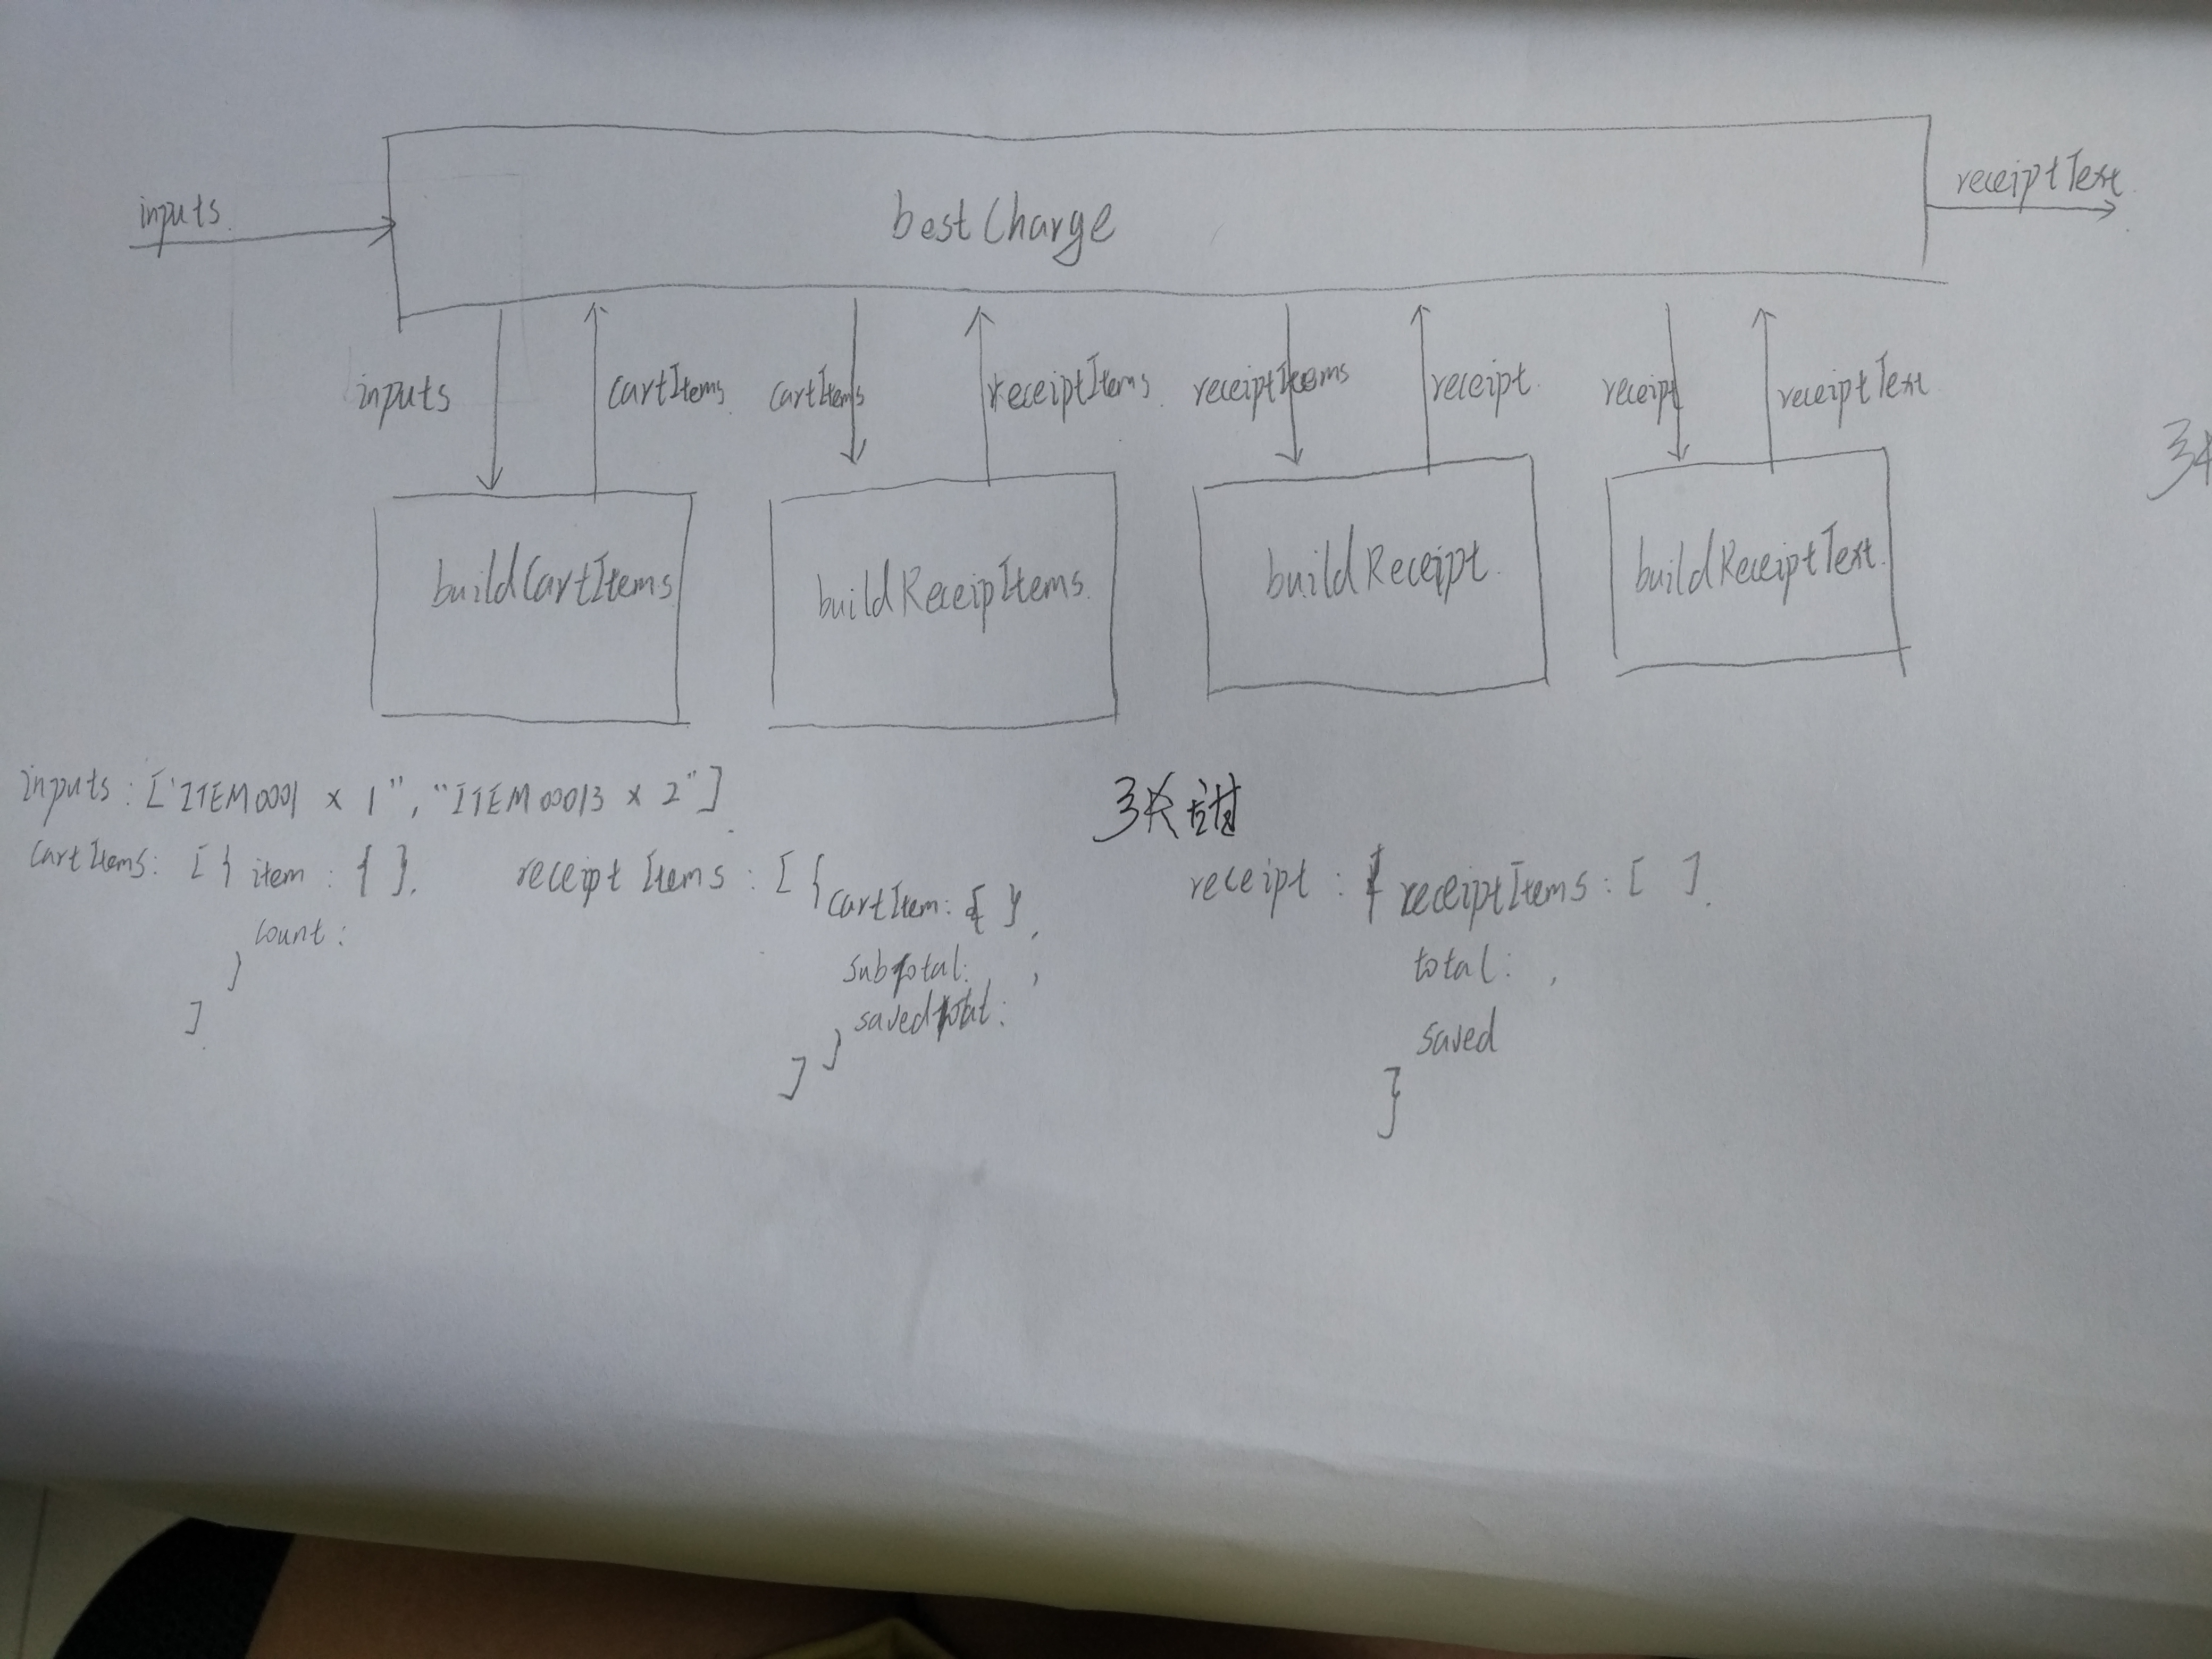 inputs
bestCharge
receiptText
inputs
cartItems
cartItems
receiptItems
receiptItems
receipt
receipt
receiptText
buildCartItems
buildReceipItems
buildReceipt
buildReceiptText
inputs: ["ITEM0001 x 1", "ITEM00013 x 2"]
cartItems: [{ item: { },
count:
}
]
receiptItems: [{ cartItem: { },
subtotal: ,
savedtotal:
}
]
receipt: { receiptItems: [ ],
total: ,
saved
}